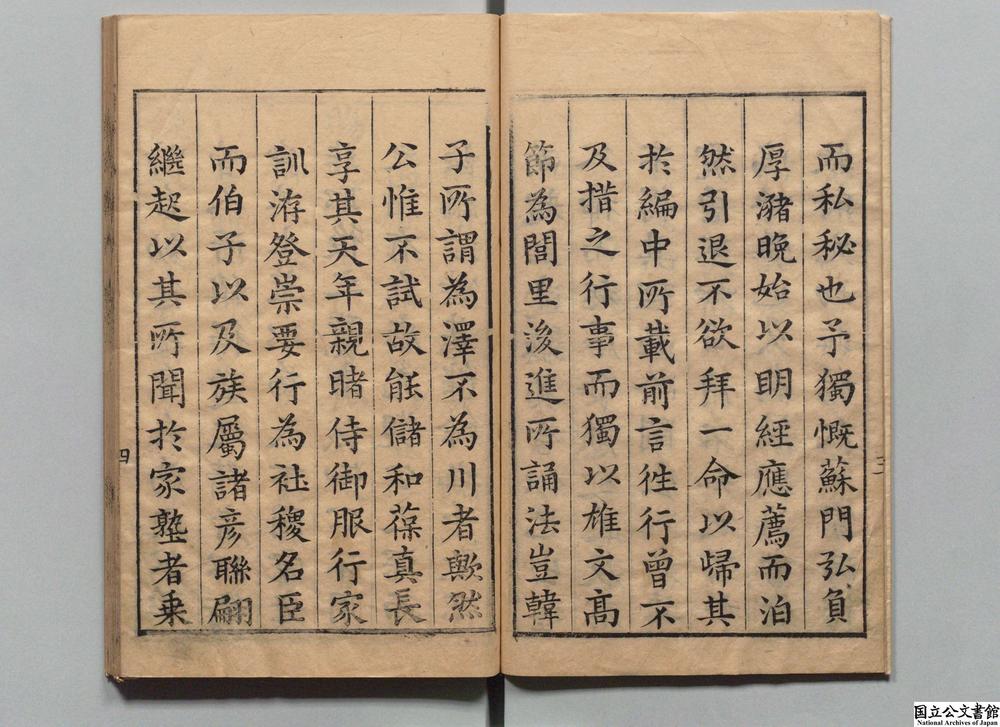 而私秘也予獨慨蘇門弘負
厚瀦晚始以明經應薦而泊
然引退不欲拜一命以歸其
於編中所載前言徃行曾不
及措之行事而獨以雄文高
節為閭里後進所誦法豈韓
三
子所謂為澤不為川者歟然
公惟不試故能儲和葆真長
享其天年親睹侍御服行家
訓洊登崇要行為社稷名臣
而伯子以及族屬諸彦聯翩
繼起以其所聞於家塾者乗
四
国立公文書館
National Archives of Japan